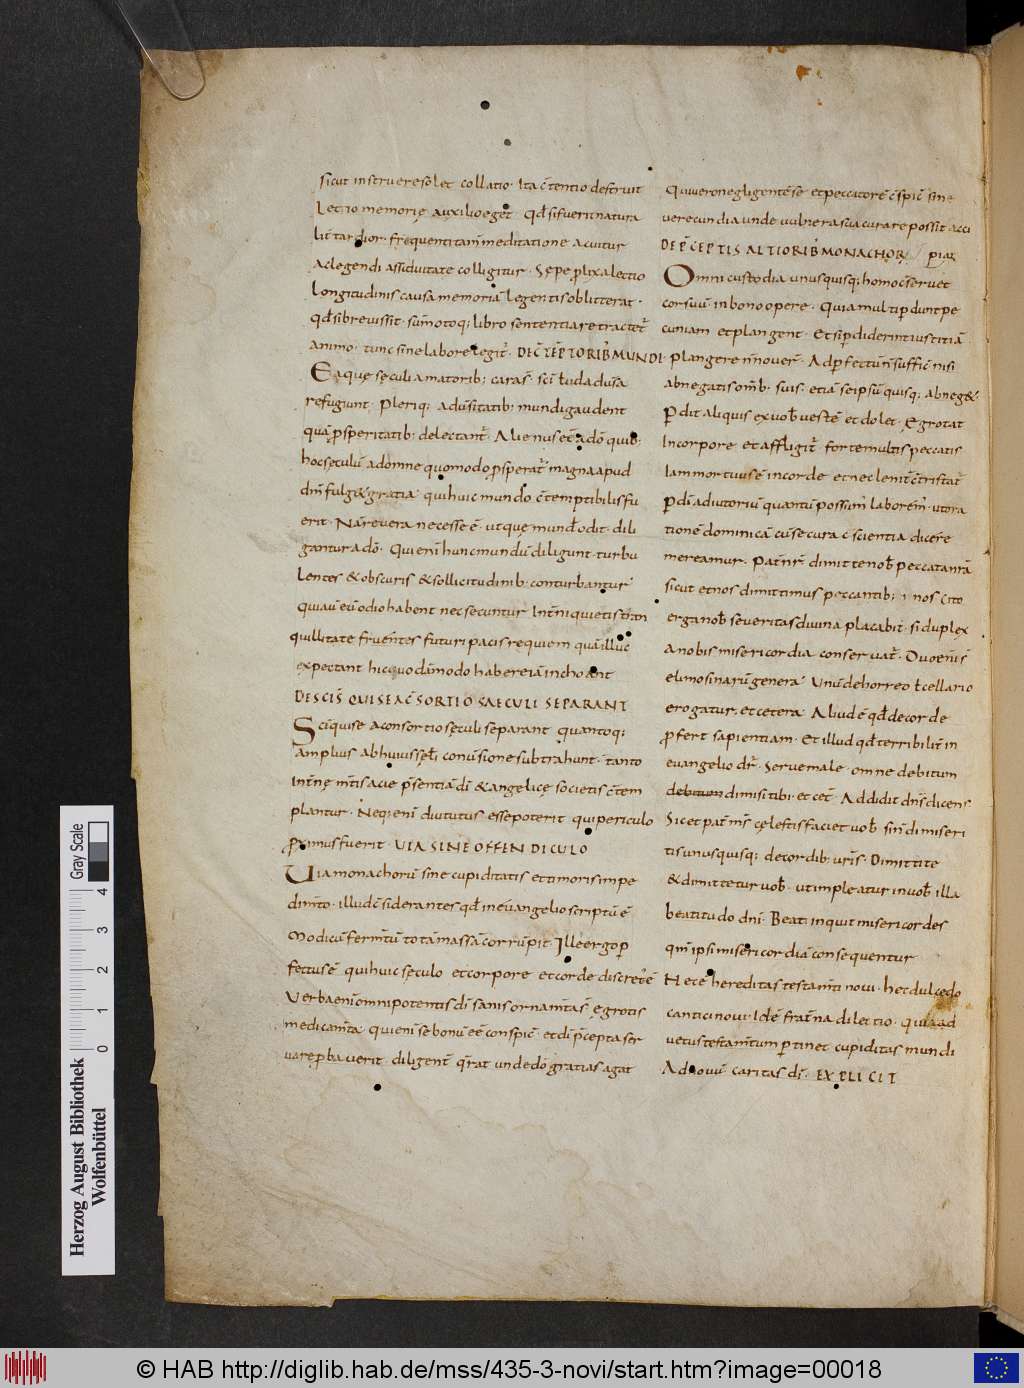 sicut instruere solet collatio. Ita c̄tentio destruit
Lectio memorię auxilio eget. qd̄ si fuerit natura
lit̄ tardior. frequenti tam̄ meditatione acuitur
Ac legendi assiduitate colligitur. Sępe p̱lixa lectio
longitudinis causa memoriā legentis oblitterat.
qd̄ si brevis sit. sūmotoq; libro sententia retractet̄
animo. tunc sine labore legit̄. DE C̄TEPTORIB; MUNDI
Ea que sęculi amatorib; cara s̄. sc̄i ł uda dusa
refugiunt. Pleriq; adūsitatib; mundi gaudent
quā p̱speritatib; delectant̄. Alienus ē a dō qui
hoc sęculū ad omne quomodo p̱sperat̄ magna apud
dn̄m fulg& gratia. qui huic mundo c̄temptibilis fu
erit. Nā revera necesse ē. ut que mund' odit. dili
gantur a dō. Qui eni hunc mundū diligunt. turbu
lentes & obscuris & sollicitudinib; conturbantur
qui aū eū odio habent nec secuntur Int̄nę quietis tran
quillitate fruentes futuri pacis requiem quā illuc
expectant hic quodāmodo habere iā inchoant
DE SC̄IS QUI SE A C̄SORTIO SAECULI SEPARANT
Sc̄i qui se a consortio sęculi separant. quantoq;
amplius ab huius sęłi conv̄sione subtrahunt. tanto
Int̄nę m̄tis acie p̄sentiā dī & angelicę societis c̄tem
plantur. Neq; eni diu tutus esse poterit qui periculo
p̱ximus fuerit. UIA SINE OFFENDICULO
Uia monachorū sine cupiditatis et timoris impe
dim̄to. illud c̄siderantes qd̄ in evangelio scriptū ē
Modicū ferm̄tū totā massā corrūpit. Ille ergo p̱
fectus ē qui huic sęculo et corpore et corde discretꝰ ē
Verba eni omnipotentis dī sanis ornam̄ta s̄. ęgrotis
medicam̄ta. qui eni se bonū eē conspic̄. et dī p̄cepta ser
vare p̱baverit. diligent̄ q̄rat unde dō gratias agat
Qui vero negligente se et peccatorē c̄spic̄ sine
verecundia unde vulnera sua curare possit. acci
DE P̄CEPTIS ALTIORIB; MONACHOR̄ piat
Omni custodia unusquisq; homo c̄servet
cor suū in bono opere. Quia multi p̱dunt pe
cuniam et plangent. Et si p̱diderint iustitiā
plangere n̄ novēr. Ad p̱fectū n̄ suffic̄ nisi
abnegatis om̄b; suis. etiā seipsū quisq; abneg&
P̱dit aliquis ex vob vestē et dolet. Ęgrotat
In corpore et affligit̄. forte multis peccatis
Iam mortuus ē in corde et nec lenit̄ c̄tristat̄
P̱ dī adiutoriū quantū possum̄ laborem̄. ut ora
tionē dominicā cū secura c̄scientia dicere
mereamur. Pat̄ nr̄ dimitte nob peccata nr̄a
sicut et nos dimittimus peccantib; i nos cito
erga nob severitas divina placabit. si duplex
a nobis misericordia conservat̄. Duo eni s̄
elimosinarū genera. Unū de horreo ł cellario
erogatur. et cetera. Aliud ē qd̄ de cor de
p̱fert sapientiam. Et illud qd̄ terribilit̄ in
evangelio dr̄. Serve male. omne debitum
debitum dimisi tibi. et cet̄. Addidit dn̄s dicens
Sic et pat̄ m̄s cęlestis faciet vob. sin̄ dimiseri
tis unusquisq; de cordib; ur̄is. Dimittite
& dimittetur vob. ut impleatur in vob illa
beatitudo dn̄i. Beati inquit misericordes
qm̄ ipsi misericordiā consequentur
Nec ē hereditas testam̄ti novi. hec dulcedo
cantici novi. Id ē frat̄na dilectio. quia ad
vetus testam̄tum p̱tinet cupiditas mundi
Ad novū caritas dī. EXPLICIT
Herzog August Bibliothek
Wolfenbüttel
Gray Scale
0 1 2 3 4
© HAB http://diglib.hab.de/mss/435-3-novi/start.htm?image=00018